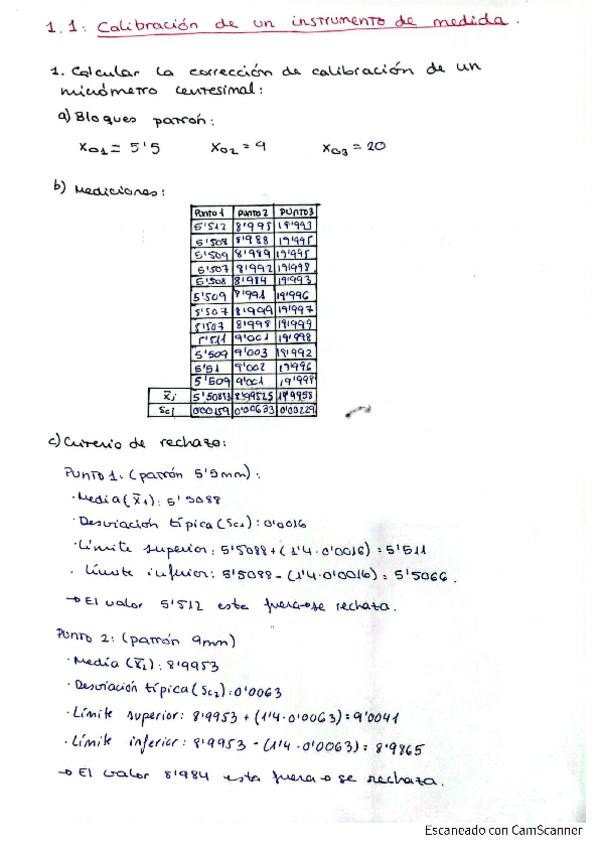 1.1: Calibración de un instrumento de medida.
1. Calcular la corrección de calibración de un
micrómetro centesimal:
a) Bloques patrón:
X01 = 5'5 X02 = 9 X03 = 20
b) Mediciones:
Punto 1 Punto 2 PUNTO 3
5'512 8'995 19'993
5'508 8'988 19'995
5'509 8'989 19'995
5'507 8'992 19'998
5'508 8'984 19'993
5'509 8'991 19'996
5'507 8'999 19'997
5'507 8'998 19'999
5'511 9'001 19'998
5'509 9'003 19'992
5'51 9'002 19'996
5'509 9'001 19'998
x̄i 5'50883 8'99525 19'9958
Sci 0'00159 0'00633 0'00229
c) Criterio de rechazo:
Punto 1: (patrón 5'5mm):
· Media (x̄1): 5'5088
· Desviación típica (Sc1): 0'0016
· Límite superior: 5'5088 + (1'4 · 0'0016) = 5'511
· Límite inferior: 5'5088 - (1'4 · 0'0016) = 5'5066.
→ El valor 5'512 esta fuera → se rechaza.
Punto 2: (patrón 9mm)
· Media (x̄2): 8'9953
· Desviación típica (Sc2): 0'0063
· Límite superior: 8'9953 + (1'4 · 0'0063) = 9'0041
· Límite inferior: 8'9953 - (1'4 · 0'0063) = 8'9865
→ El valor 8'984 esta fuera → se rechaza.
Escaneado con CamScanner